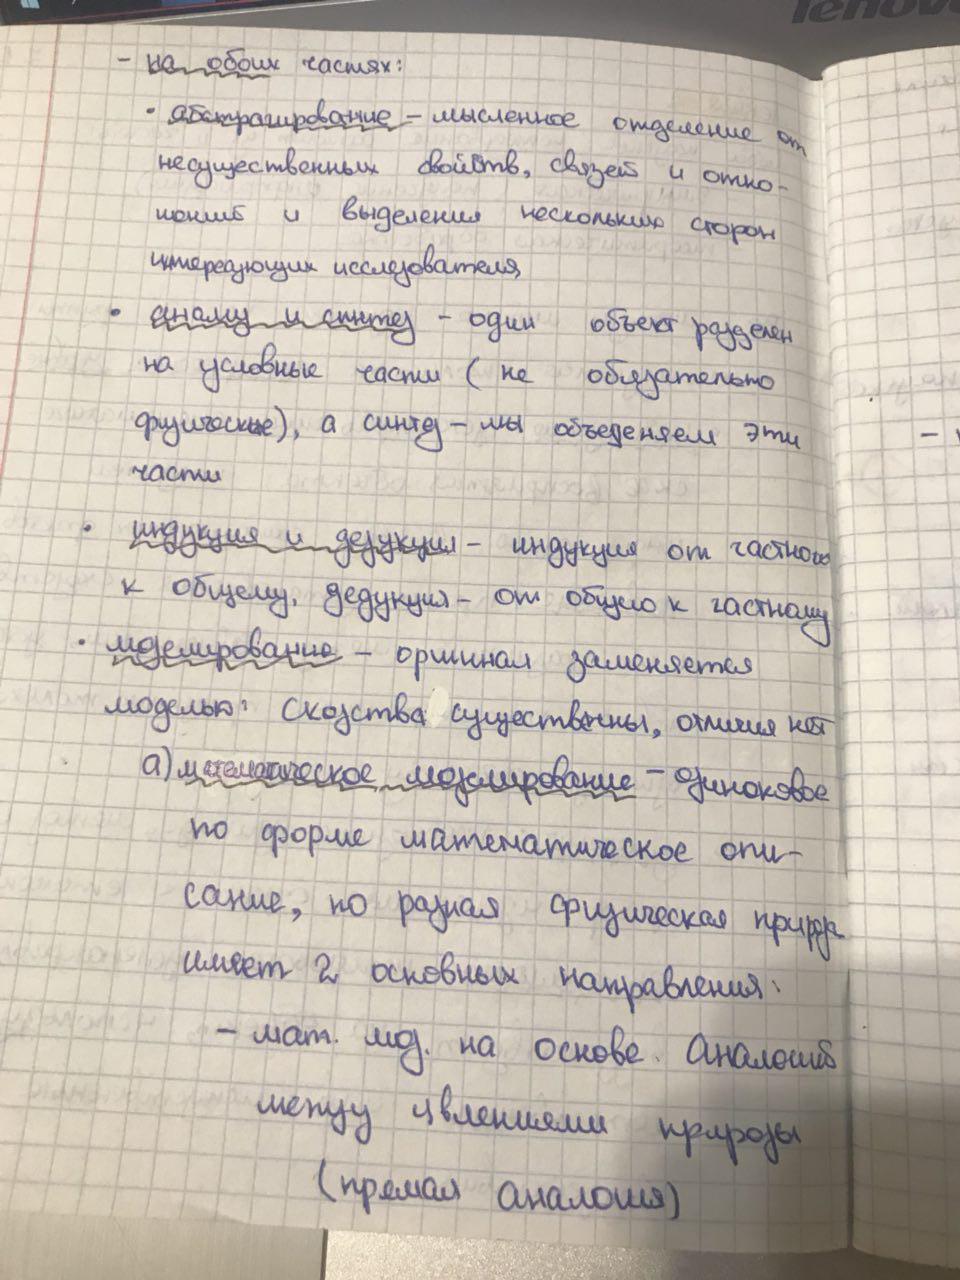 lenovo
- на обоих частях:
• абстрагирование - мысленное отделение от
несущественных свойств, связей и отно-
шений и выделения нескольких сторон
интересующих исследователя,
• анализ и синтез - один объект разделен
на условные части (не обязательно
физические), а синтез - мы объеденяем эти
части
• индукция и дедукция - индукция от частного
к общему, дедукция - от общего к частному
• моделирование - оригинал заменяется
моделью: сходства существенны, отличия нет
а) математическое моделирование - одиноковое
по форме математическое опи-
сание, но разная физическая природа
имеет 2 основных направления:
- мат. мод. на основе аналогий
между явлениями природы
(прямая аналогия)